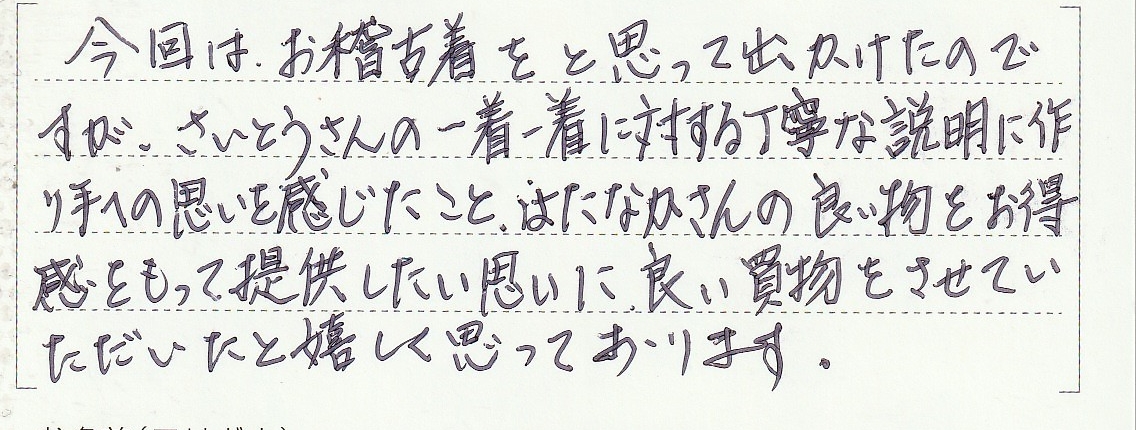 今回は、お稽古着をと思って出かけたので
すが、さいとうさんの一着一着に対する丁寧な説明に作
り手への思いを感じたこと、はたなかさんの良い物をお得
感をもって提供したい思いに、良い買物をさせてい
ただいたと嬉しく思っております。